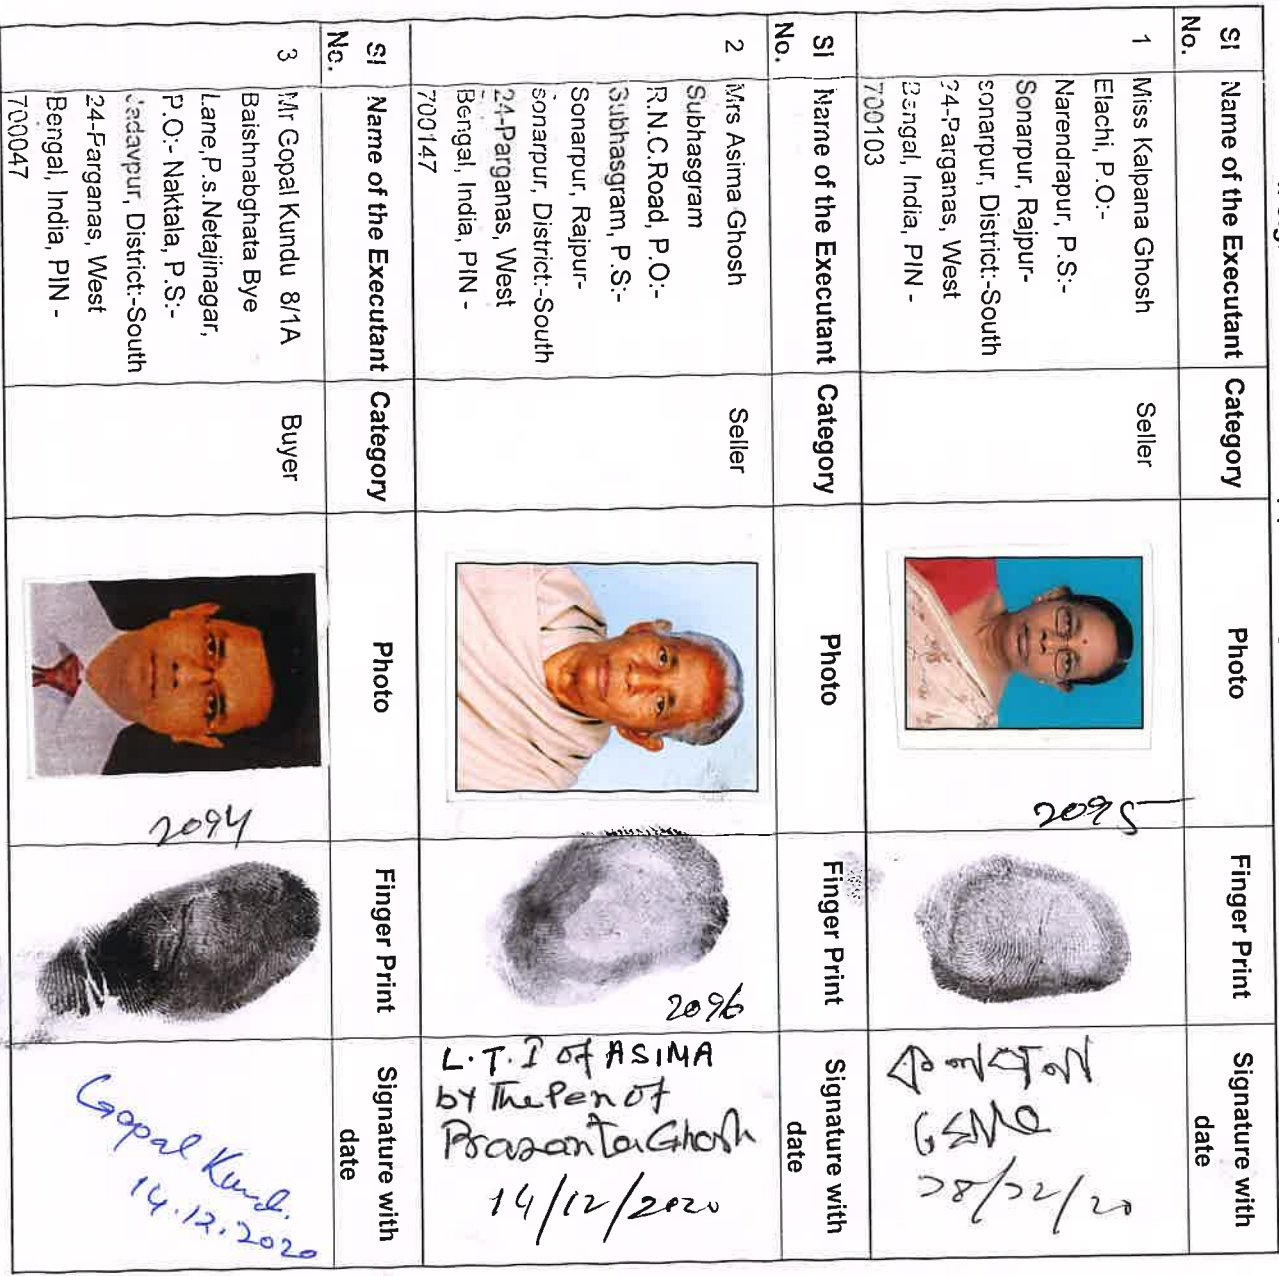 Sl No.
Name of the Executant
Category
Photo
Finger Print
Signature with date
1
Miss Kalpana Ghosh
Elachi, P.O:-
Narendrapur, P.S:-
Sonarpur, Rajpur-
sonarpur, District:-South
24-Parganas, West
Bengal, India, PIN -
700103
Seller
2095
কল্পনা
ঘোষ
১৪/১২/২০
Sl No.
Name of the Executant
Category
Photo
Finger Print
Signature with date
2
Mrs Asima Ghosh
Subhasgram
R.N.C.Road, P.O:-
Subhasgram, P.S:-
Sonarpur, Rajpur-
sonarpur, District:-South
24-Parganas, West
Bengal, India, PIN -
700147
Seller
2096
L.T.I of ASIMA
by The Pen of
Prasanta Ghosh
14/12/2020
Sl No.
Name of the Executant
Category
Photo
Finger Print
Signature with date
3
Mr Gopal Kundu 8/1A
Baishnabghata Bye
Lane,P.s.Netajinagar,
P.O:- Naktala, P.S:-
Jadavpur, District:-South
24-Parganas, West
Bengal, India, PIN -
700047
Buyer
2094
Gopal Kundu.
14.12.2020